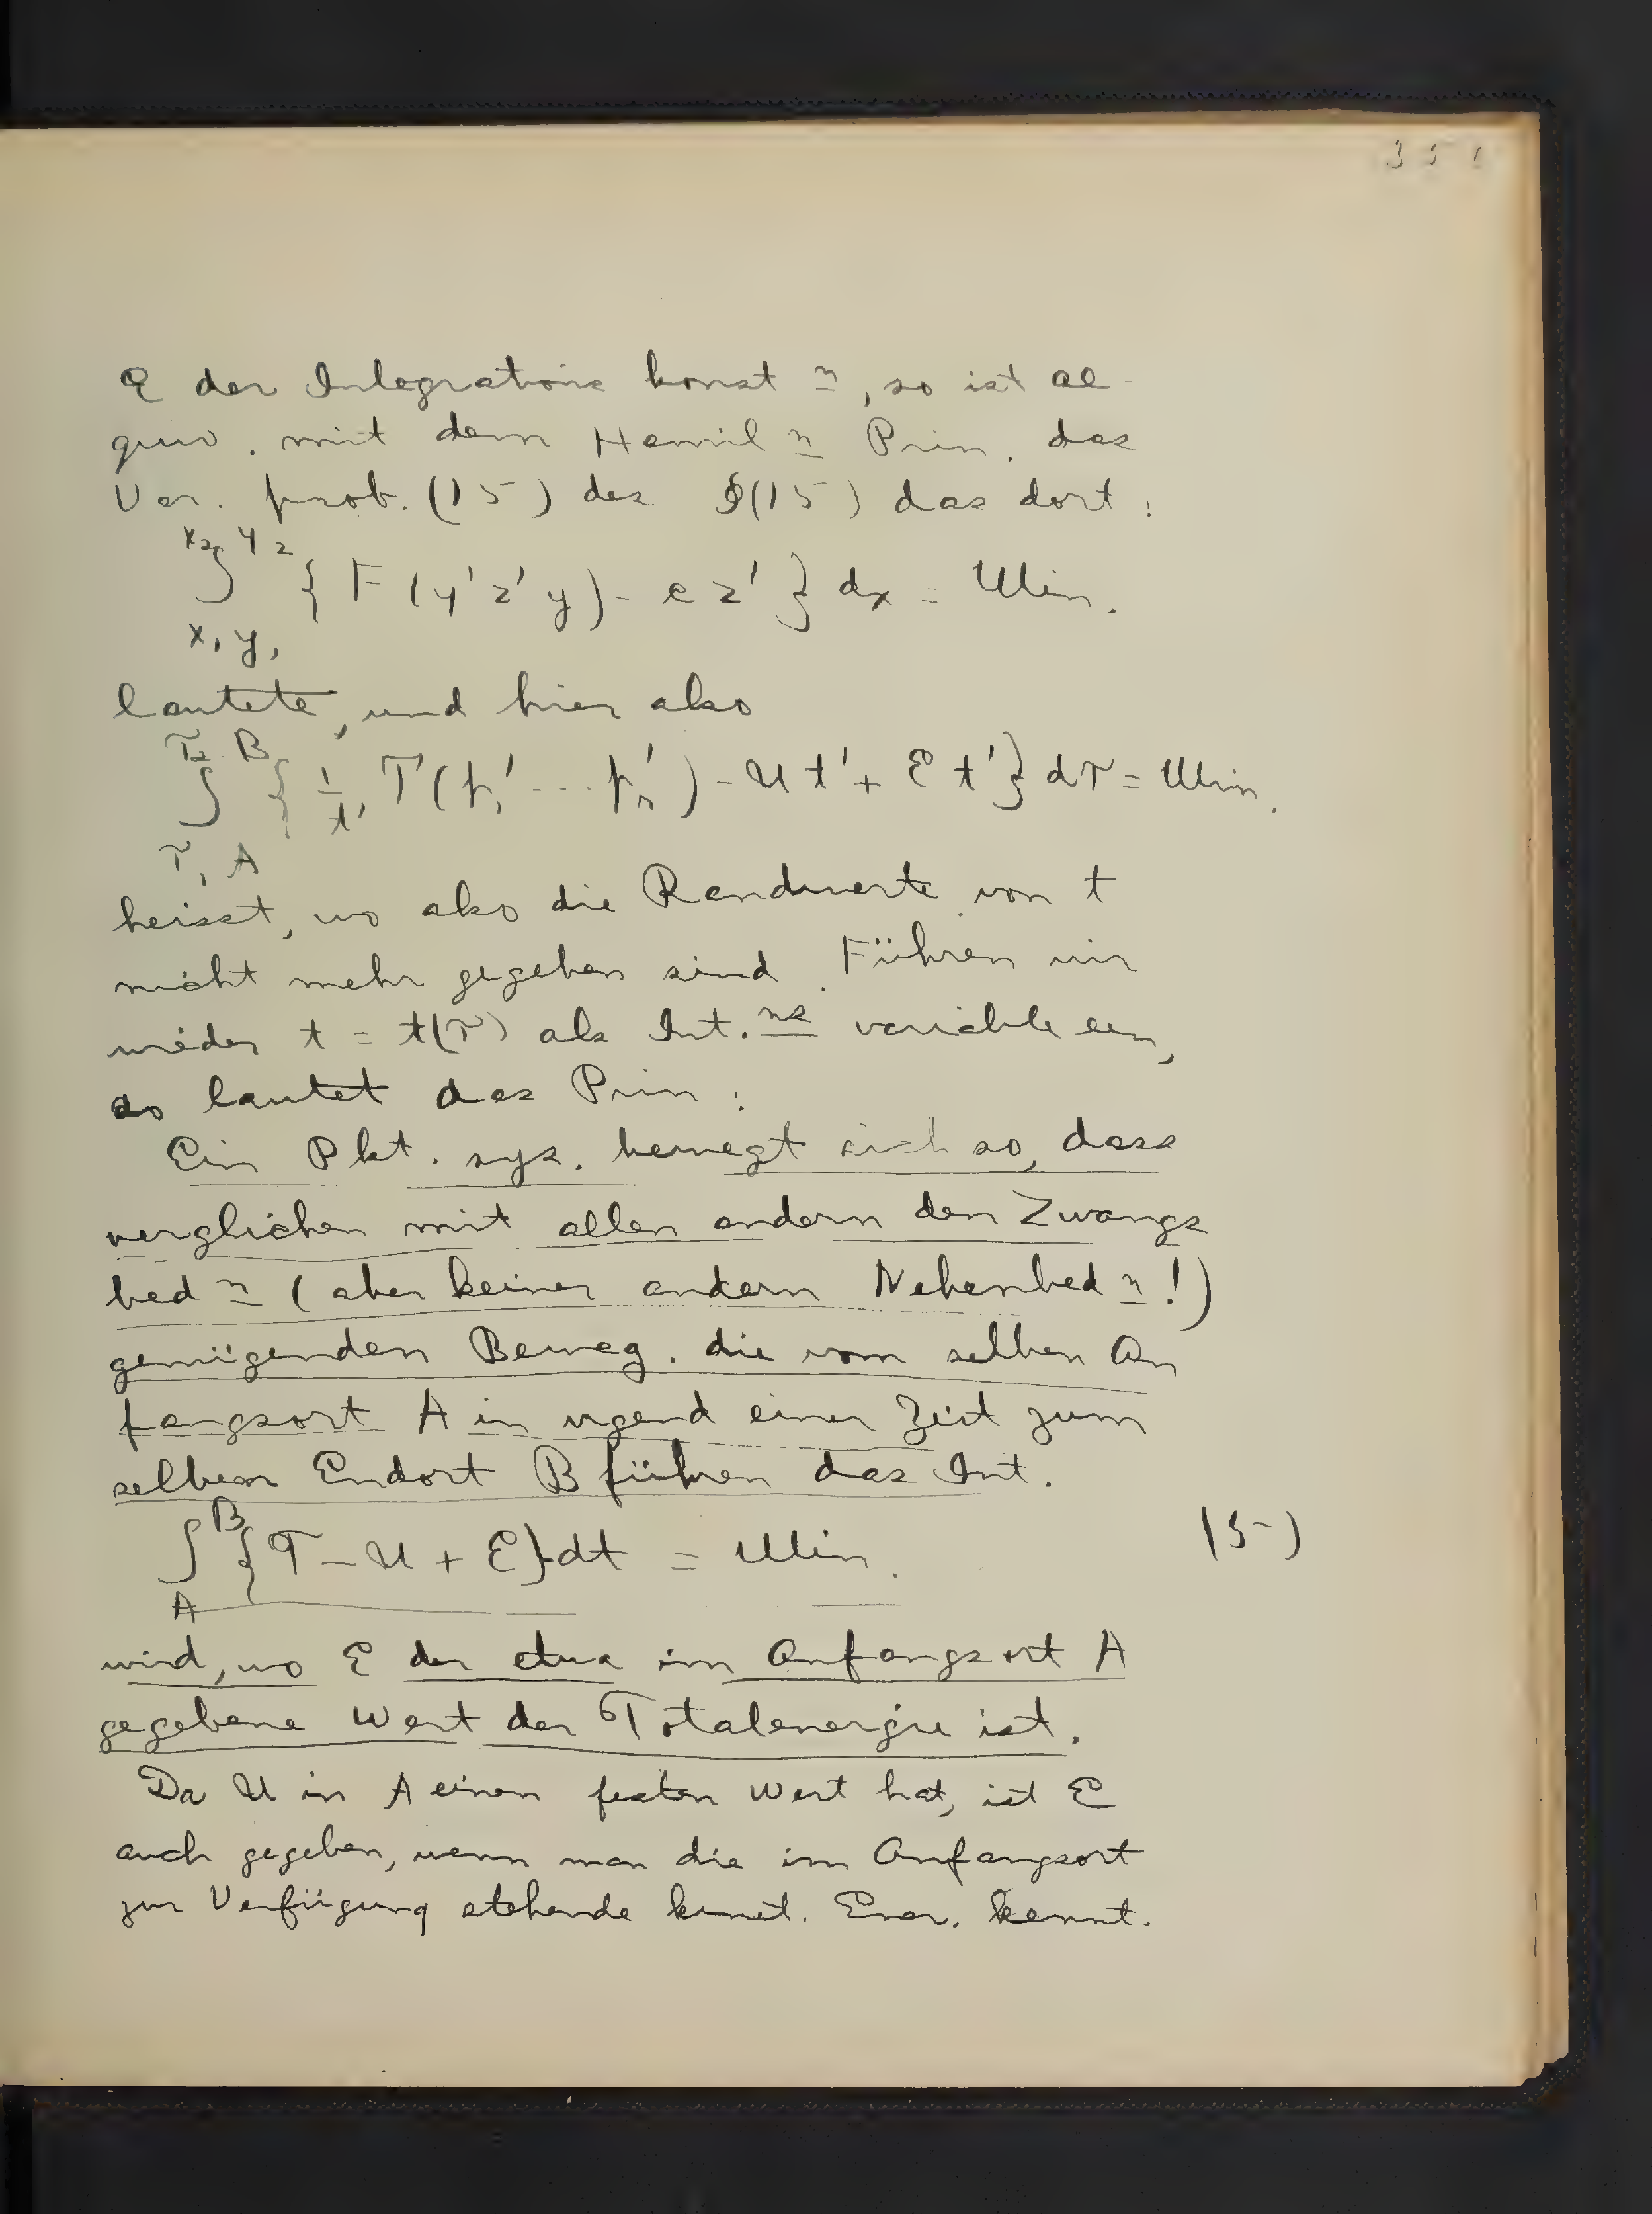 351
E der Integrations konst n, so ist ae-
quiv. mit dem Hamil n Prin. das
Var. prob. (15) des §(15) das dort:
∫_{x₁y₁}^{x₂y₂} {F(y'z'y) - ez'} dx = Min.
lautete, und hier also
∫_{τ₁A}^{τ₂B} {1/t' T(p₁'...pₙ') - Ut' + Et'} dτ = Min.
heisst, wo also die Randwerte von t
nicht mehr gegeben sind. Führen wir
wieder t = t(τ) als Int. ns variable ein,
so lautet das Prin:
Ein Pkt. sys. bewegt sich so, dass
verglichen mit allen andern den Zwangs
bed n (aber keiner andern Nebenbed n!)
genügenden Beweg. die vom selben An
fangsort A in irgend einer Zeit zum
selben Endort B führen das Int.
∫_A^B {T - U + E} dt = Min. (5)
wird, wo E der etwa im Anfangsort A
gegebene Wert der Totalenergie ist.
Da U in A einen festen Wert hat, ist E
auch gegeben, wenn man die im Anfangsort
zur Verfügung stehende kinet. Ener. kennt.